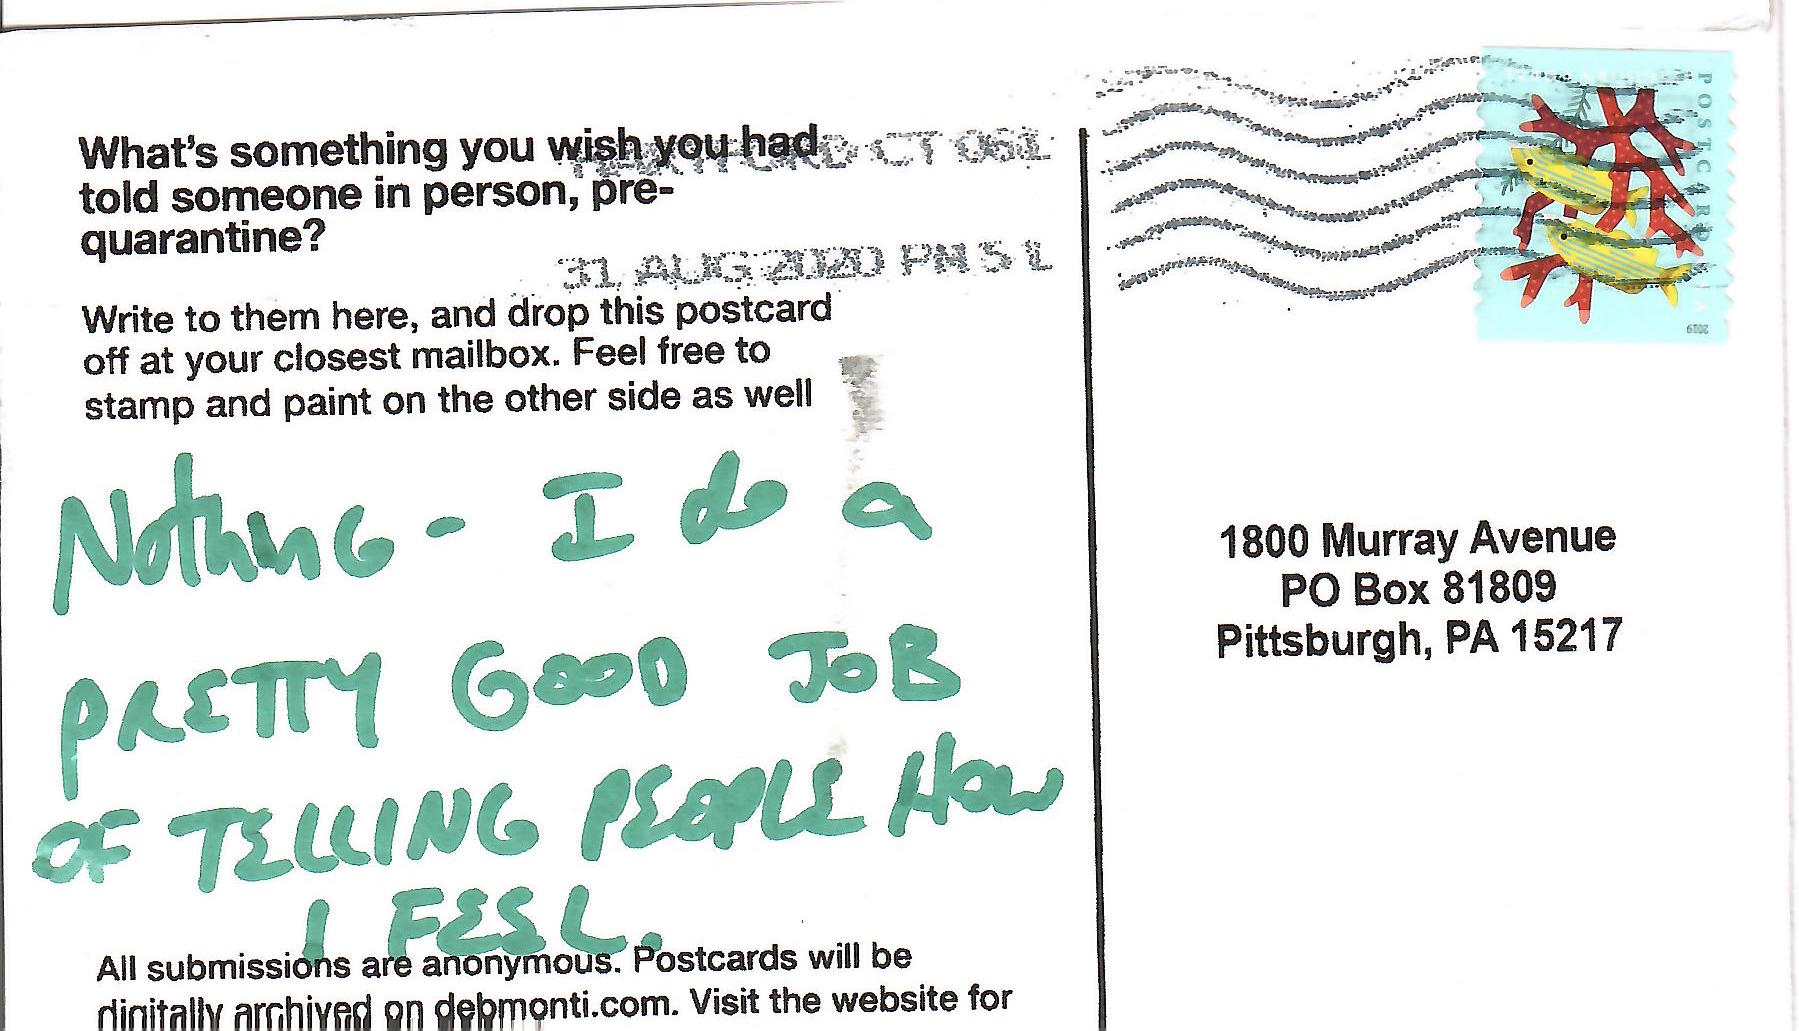 What's something you wish you had
told someone in person, pre-
quarantine?
HARTFORD CT 061
31 AUG 2020 PM 5 L
Write to them here, and drop this postcard
off at your closest mailbox. Feel free to
stamp and paint on the other side as well
Nothing - I do a
PRETTY GOOD JOB
OF TELLING PEOPLE HOW
I FEEL.
All submissions are anonymous. Postcards will be
digitally archived on debmonti.com. Visit the website for
POSTCARD
2019
1800 Murray Avenue
PO Box 81809
Pittsburgh, PA 15217